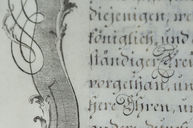 diejenigen, w
königlich, und
ständiger Frei
vorgethan, un
here Ehren, un